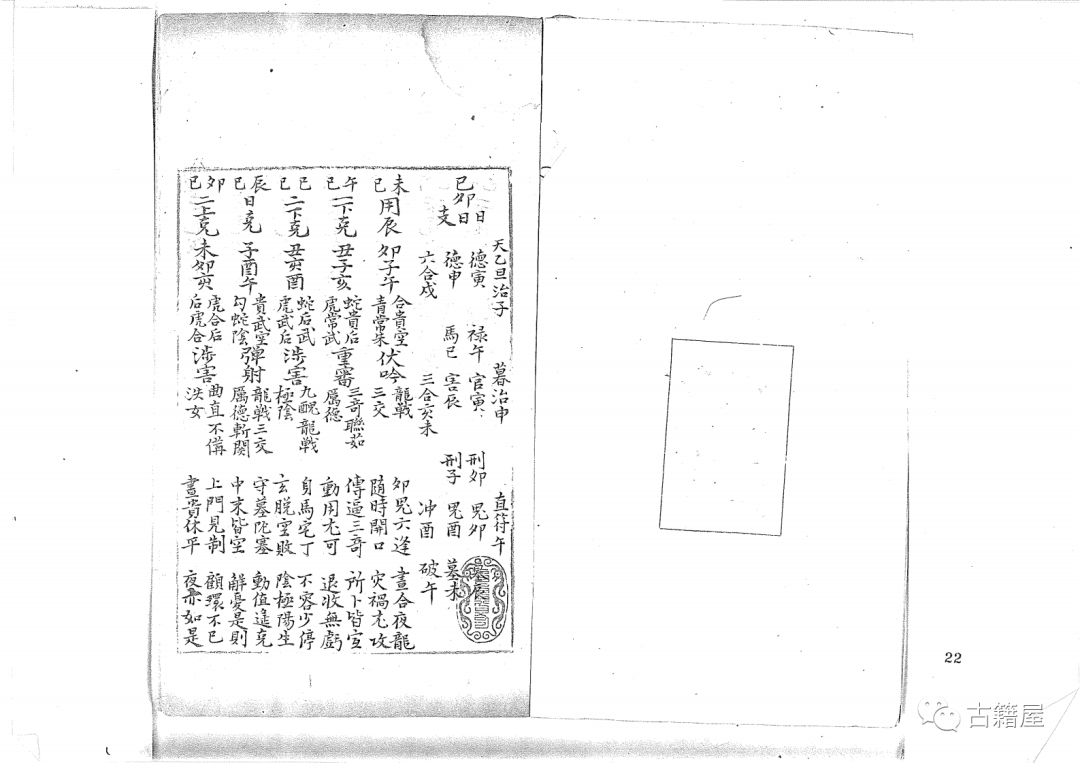 天乙旦治子 暮治申 直符午
己卯日
日 德寅 祿午 官寅、 刑卯 鬼卯
支 德申 馬巳 害辰 刑子 鬼酉 墓未
六合戌 三合亥未 冲酉 破午
未 合貴空 龍戰 卯鬼六逢 晝合夜龍
己 用辰 卯子午 青常朱 伏吟 三交 隨時開口 灾禍尤攻
午 蛇貴后 三奇聯茹 傳逼三奇 所卜皆宜
己 一下克 丑子亥 虎常武 重審 厲德 動用尤可 退收無虧
巳 蛇后武 九醜龍戰 自馬宅丁 不容少停
己 二下克 丑亥酉 虎武后 涉害 極陰 玄脫空敗 陰極陽生
辰 貴武空 龍戰三交 守墓阨塞 動值進克
己 日克 子酉午 勾蛇陰 彈射 厲德斬関 中末皆空 解憂是則
卯 虎合后 曲直不備 上門見制 顧環不已
己 二上克 未卯亥 后虎合 涉害 泆女 晝貴休平 夜亦如是
22
古籍屋